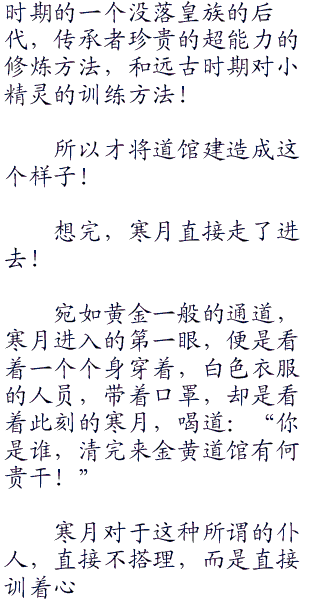 时期的一个没落皇族的后
代，传承者珍贵的超能力的
修炼方法，和远古时期对小
精灵的训练方法！
所以才将道馆建造成这
个样子！
想完，寒月直接走了进
去！
宛如黄金一般的通道，
寒月进入的第一眼，便是看
着一个个身穿着，白色衣服
的人员，带着口罩，却是看
着此刻的寒月，喝道：“你
是谁，清完来金黄道馆有何
贵干！”
寒月对于这种所谓的仆
人，直接不搭理，而是直接
训着心